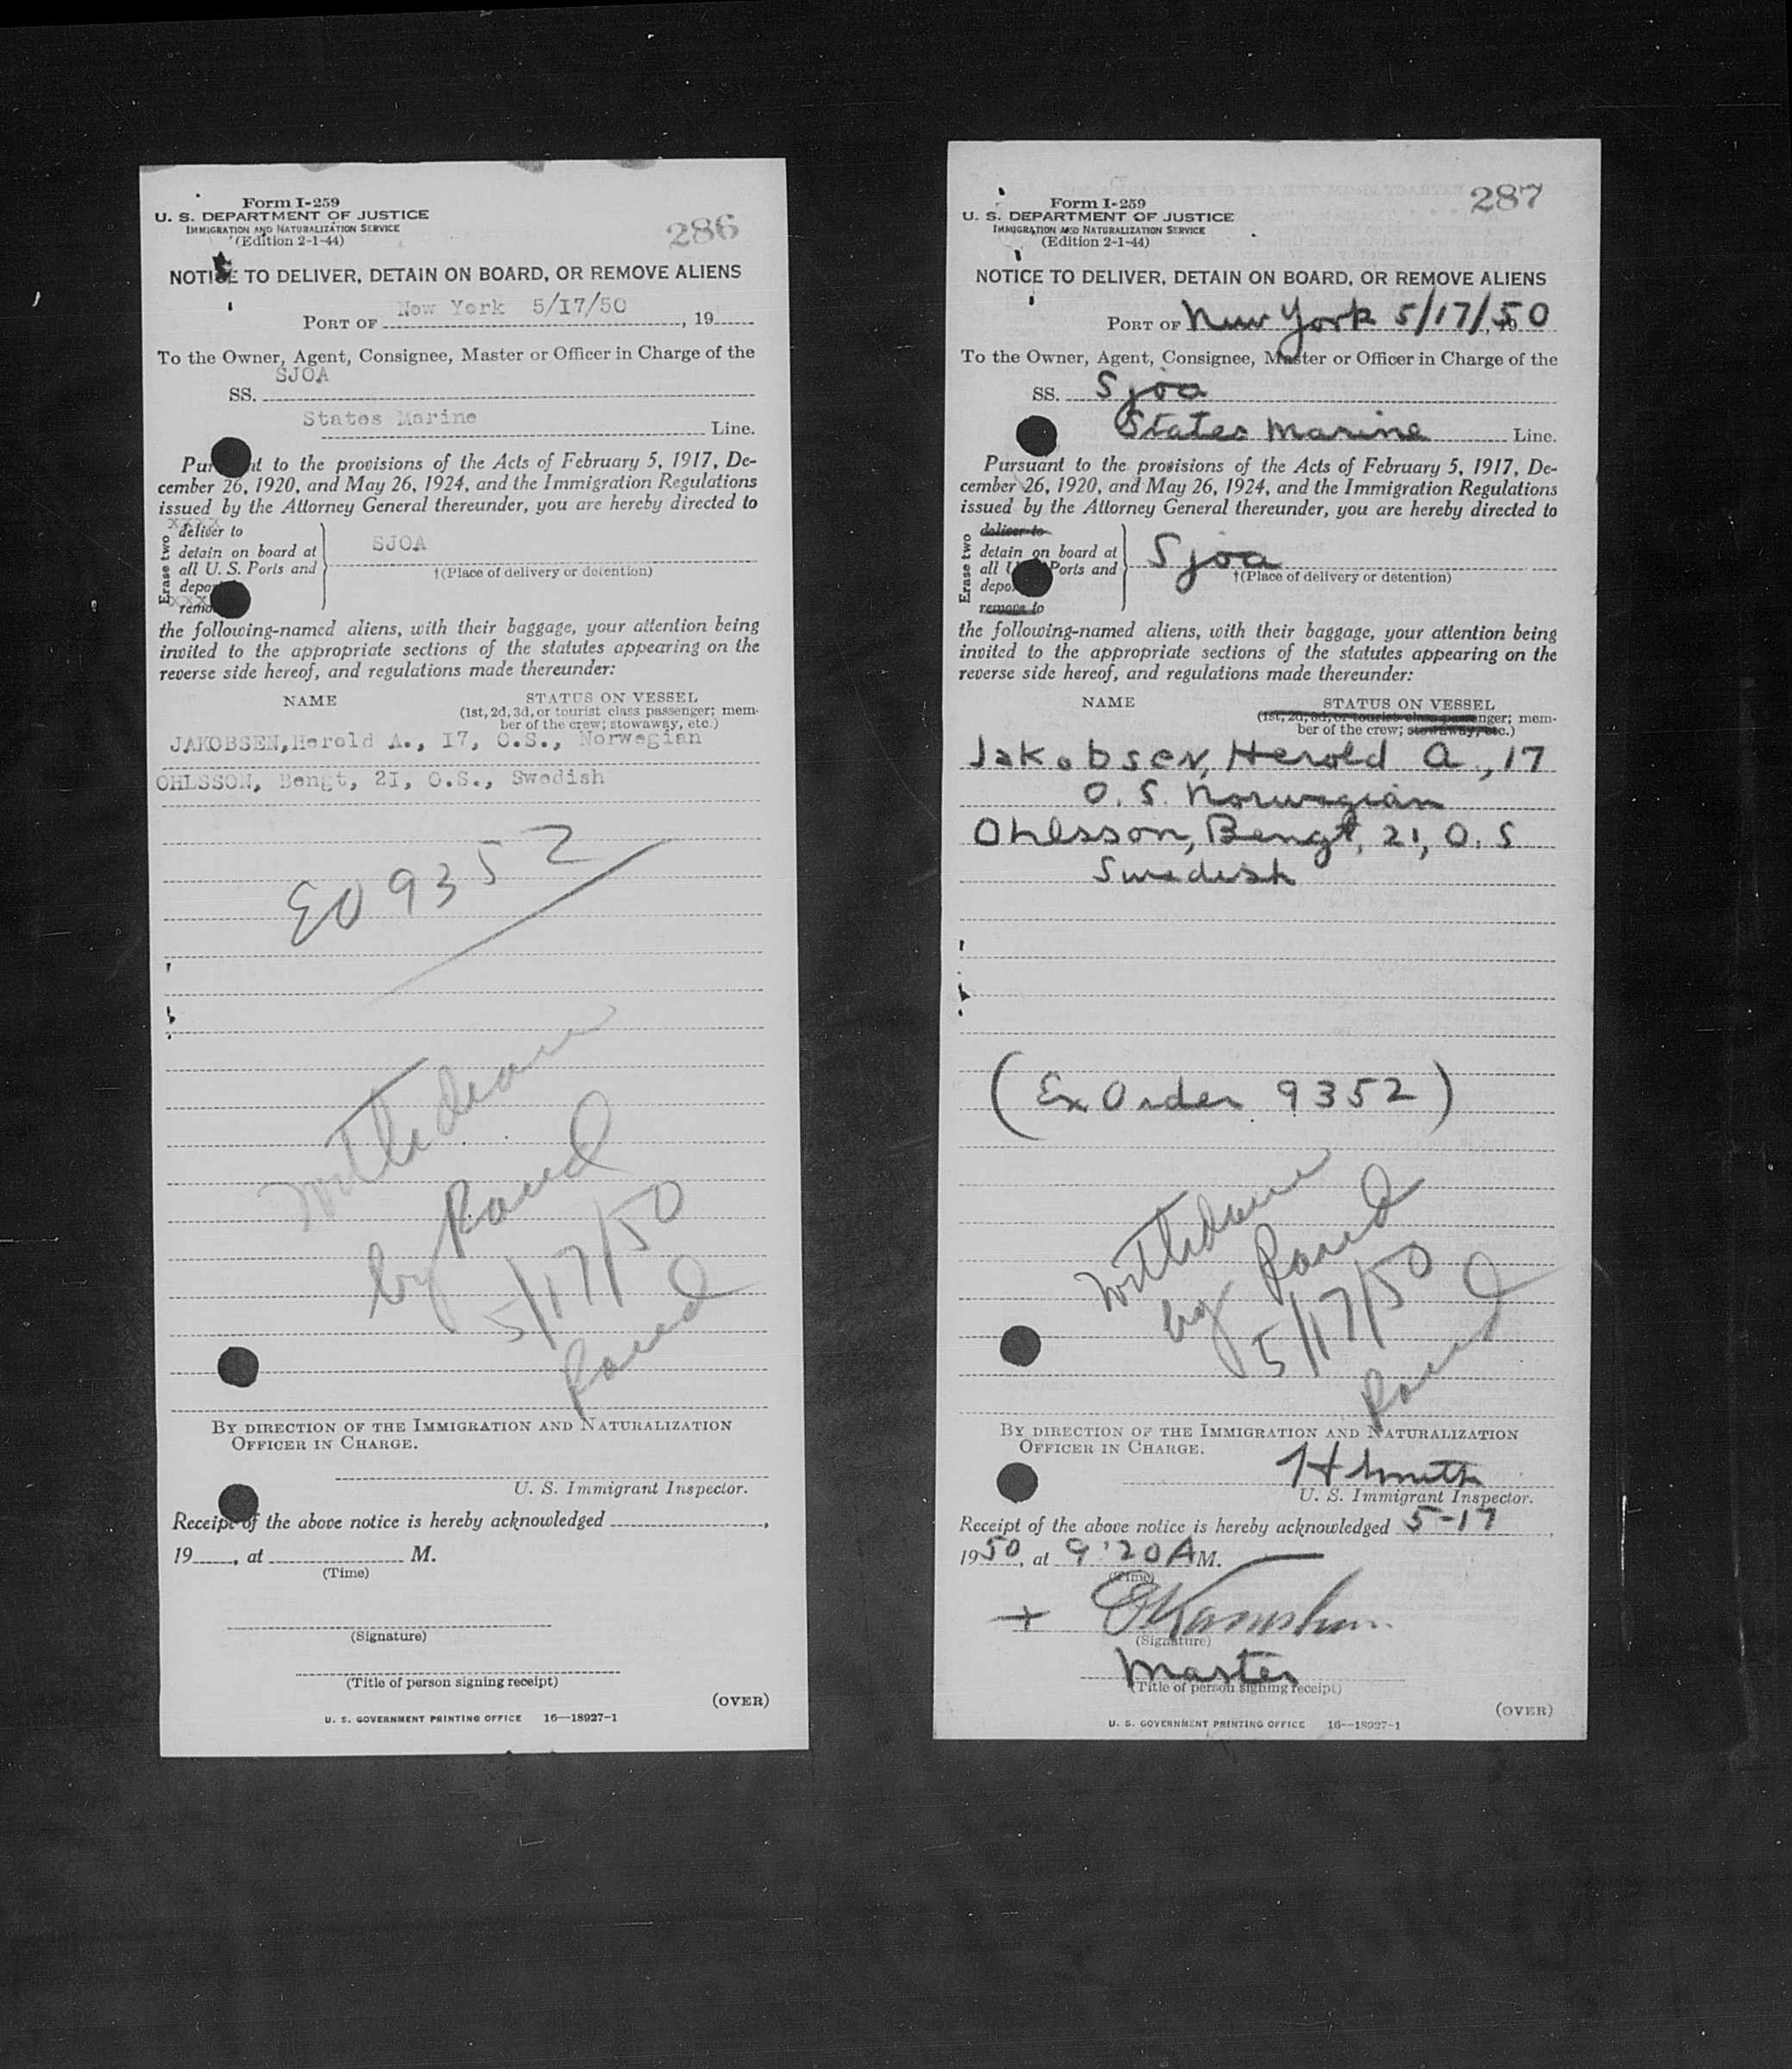 Form I-259
U. S. DEPARTMENT OF JUSTICE
IMMIGRATION AND NATURALIZATION SERVICE
(Edition 2-1-44)
286
NOTICE TO DELIVER, DETAIN ON BOARD, OR REMOVE ALIENS
PORT OF New York 5/17/50, 19
To the Owner, Agent, Consignee, Master or Officer in Charge of the
SJOA
SS.
States Marine Line.
Pursuant to the provisions of the Acts of February 5, 1917, De-
cember 26, 1920, and May 26, 1924, and the Immigration Regulations
issued by the Attorney General thereunder, you are hereby directed to
Erase two
xxxx
deliver to
detain on board at
all U. S. Ports and
depo
xxx
remo
SJOA
†(Place of delivery or detention)
the following-named aliens, with their baggage, your attention being
invited to the appropriate sections of the statutes appearing on the
reverse side hereof, and regulations made thereunder:
NAME STATUS ON VESSEL
(1st, 2d, 3d, or tourist class passenger; mem-
ber of the crew; stowaway, etc.)
JAKOBSEN, Herold A., I7, O.S., Norwegian
OHLSSON, Bengt, 2I, O.S., Swedish
EO 9352
Withdrawn
by
5/17/50
BY DIRECTION OF THE IMMIGRATION AND NATURALIZATION
OFFICER IN CHARGE.
U. S. Immigrant Inspector.
Receipt of the above notice is hereby acknowledged ,
19 , at M.
(Time)
(Signature)
(Title of person signing receipt)
(OVER)
U. S. GOVERNMENT PRINTING OFFICE 16—18927-1
Form I-259
U. S. DEPARTMENT OF JUSTICE
IMMIGRATION AND NATURALIZATION SERVICE
(Edition 2-1-44)
287
NOTICE TO DELIVER, DETAIN ON BOARD, OR REMOVE ALIENS
PORT OF New York 5/17/50
To the Owner, Agent, Consignee, Master or Officer in Charge of the
SS. Sjoa
States Marine Line.
Pursuant to the provisions of the Acts of February 5, 1917, De-
cember 26, 1920, and May 26, 1924, and the Immigration Regulations
issued by the Attorney General thereunder, you are hereby directed to
Erase two
deliver to
detain on board at
all U Ports and
depo
remove to
Sjoa
†(Place of delivery or detention)
the following-named aliens, with their baggage, your attention being
invited to the appropriate sections of the statutes appearing on the
reverse side hereof, and regulations made thereunder:
NAME STATUS ON VESSEL
(1st, 2d, 3d, or tourist class passenger; mem-
ber of the crew; stowaway, etc.)
Jakobsen, Herold A., 17
O. S. Norwegian
Ohlsson, Bengt, 21, O. S
Swedish
(Ex Order 9352)
Withdrawn
by
5/17/50
BY DIRECTION OF THE IMMIGRATION AND NATURALIZATION
OFFICER IN CHARGE.
H Smith
U. S. Immigrant Inspector.
Receipt of the above notice is hereby acknowledged 5-17,
1950, at 9:20 A M.
(Time)
(Signature)
Master
(Title of person signing receipt)
(OVER)
U. S. GOVERNMENT PRINTING OFFICE 16—18927-1